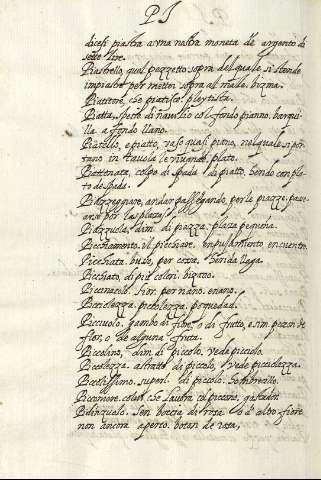 P I
dicesi piastra a una nostra moneta de argento di
sette lire.
Piastrello, quel pezzetto sopra del quale si stende
impiastro per metter sopra al male. bizma.
Piatitore, che piatisce. pleytista.
Piatta, specie di navilio col fondo pianno, barqui-
lla a fondo llano.
Piatello, e piatto, vaso quasi piano, nel quale si por-
tano in tavola le vivande. plato.
Piattonata, colpo di spada di piatto. con pla-
to de spada.
Piazzeggiare, andar passeggiando, per le piazze, pase-
arse por las plazas.
Piazzuola, dim. di piazza. plaza pequeña.
Picchiamento, il picchiare. empujamiento encuentro.
Picchiata, busso, per cossa. honda llaga.
Picchiato, di più colori. bizaro.
Piccinacolo. sior. per nano. enano.
Picciolezza. picolezza. pequedad.
Picciuolo, gambo di fiore, o di frutto, e sim. pezon de
flor, o de alguna fruta.
Picciolino, dim. di piccolo. vede picciolo.
Picolezza. astratto di piccolo, vede picciolezza.
Picolissimo. superl. di piccolo.
Picconiere. colui che lavora col piccone, gastador.
Pidinzuolo. sen boccia di rosa o d'altro fiore
non ancora aperto. boton de rosa,